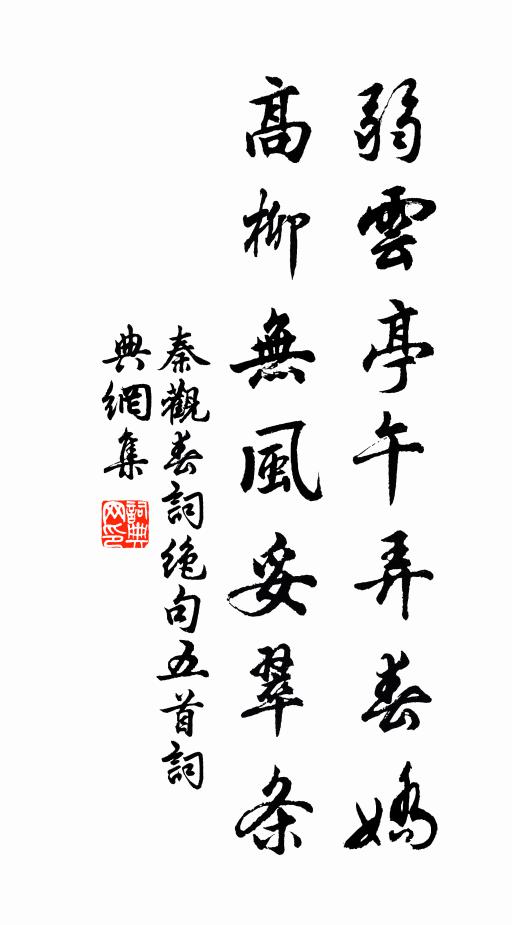 弱雲亭午弄春嬌
高柳無風妥翠条
秦觀春詞絶句五首詞
典網集
詞典网印